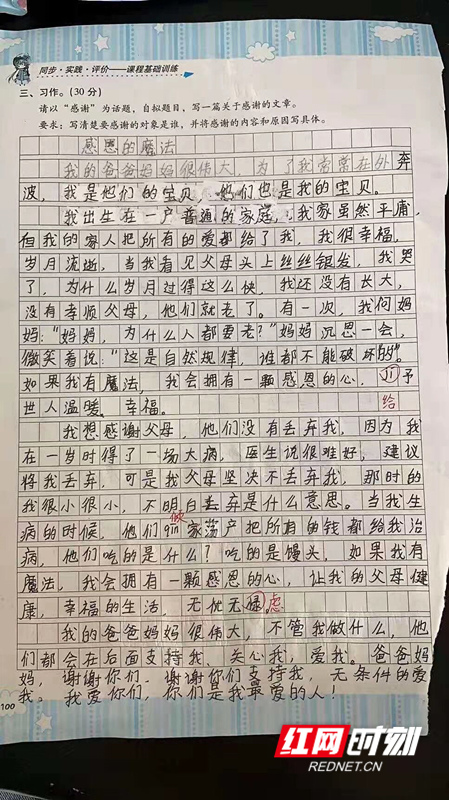 同步·实践·评价——课程基础训练
三、习作。(30分)
请以“感谢”为话题，自拟题目，写一篇关于感谢的文章。
要求：写清楚要感谢的对象是谁，并将感谢的内容和原因写具体。
感恩的魔法
我的爸爸妈妈很伟大，为了我常常在外奔
波，我是他们的宝贝，他们也是我的宝贝。
我出生在一户普通的家庭，我家虽然平庸，
但我的家人把所有的爱都给了我，我很幸福，
岁月流逝，当我看见父母头上丝丝银发，我哭
了，为什么岁月过得这么快，我还没有长大，
没有孝顺父母，他们就老了。有一次，我问妈
妈：“妈妈，为什么人都要老？”妈妈沉思一会，
微笑着说：“这是自然规律，谁都不能破坏的”。
如果我有魔法，我会拥有一颗感恩的心，予
给
世人温暖、幸福。
我想感谢父母，他们没有丢弃我，因为我
在一岁时得了一场大病，医生说很难好，建议
将我丢弃，可是我父母坚决不丢弃我，那时的
我很小很小，不明白丢弃是什么意思。当我生
倾
病的时候，他们qin家荡产把所有的钱都给我治
病，他们吃的是什么？吃的是馒头，如果我有
魔法，我会拥有一颗感恩的心，让我的父母健
康，幸福的生活，无忧无禄。虑
我的爸爸妈妈很伟大，不管我做什么，他
们都会在后面支持我、关心我，爱我。爸爸妈
妈，谢谢你们，谢谢你们支持我，无条件的爱
我，我爱你们，你们是我最爱的人！
100
红网时刻
REDNET.CN